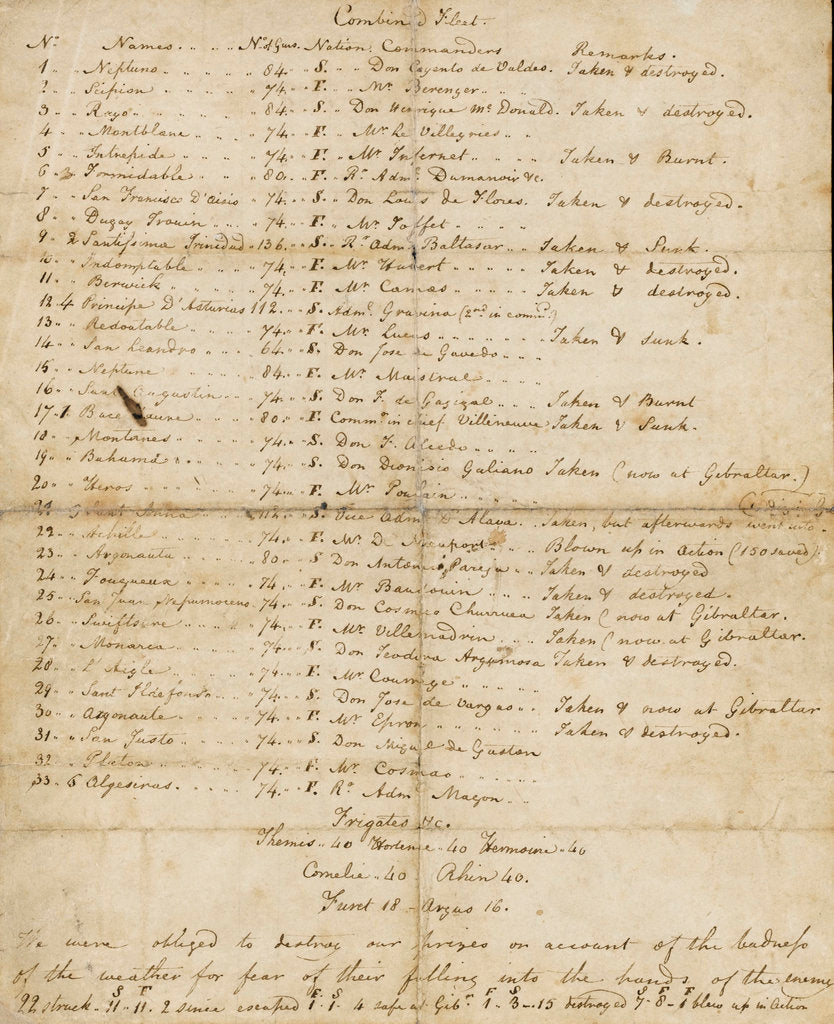 Combined Fleet.
No. Names. No. of Guns. Nation. Commanders Remarks.
1 " " Neptuno " 84 " S. " Don Cayento de Valdes. Taken & destroyed.
2 " " Scipion " 74 " F. " Mr. Berenger
3 " " Rayo " 84 " S. Don Henrique Mc. Donald. Taken & destroyed.
4 " " Montblane " 74 " F. " Mr. Le Villegries
5 " " Intrepide " 74 " F. " Mr. Infernet " Taken & Burnt.
6 " 3 Formidable " 80 " F. Rr. Adml. Dumanoir &c.
7 " " San Francisco D'Asisio " 74 " S. Don Louis de Flores. Taken & destroyed.
8 " " Dugay Trouin " 74 " F. " Mr. Toffet
9 " 2 Santissima Trinidad " 136 " S. Rr. Adml. Baltasar " Taken & Sunk.
10 " " Indomptable " 74 " F. Mr. Hubert " Taken & destroyed.
11 " " Berwick " 74 " F. Mr. Camas " Taken & destroyed.
12 " 4 Principe D'Asturias 112 " S. Adml. Gravina (2nd in commd.)
13 " " Redoutable " 74 " F. Mr. Lucas " Taken & sunk.
14 " " San Leandro " 64 " S. Don Jose de Gavedo
15 " " Neptune " 84 " F. Mr. Maistral
16 " " Sant Augustin " 74 " S. Don F. de Gagigal " Taken & Burnt
17 " 1 Bucentaure " 80 " F. Commr. in Chief Villeneuve Taken & Sunk.
18 " " Montanes " 74 " S. Don F. Alcedo
19 " " Bahama " 74 " S. Don Dionisio Galiano Taken (now at Gibraltar.)
20 " " Heros " 74 " F. Mr. Poulain
21 " 5 Sant Anna " 112 " S. Vice Adml. D'Alava. Taken, but afterwards went into (Cadiz)
22 " " Achille " 74 " F. Mr. De Nieuport " Blown up in Action (150 saved).
23 " " Argonauta " 80 " S Don Antonio Pareja " Taken & destroyed
24 " " Fougueux " 74 " F. Mr. Baudouin " Taken & destroyed.
25 " " San Juan Nepumoceno " 74 " S. Don Cosmas Churruea Taken (now at Gibraltar.
26 " " Swiftsure " 74 " F. Mr. Villemadrin " Taken (now at Gibraltar.
27 " " Monarca " 74 " S. Don Teodora Argumosa Taken & destroyed.
28 " " L'Aigle " 74 " F. Mr. Courrege
29 " " Sant Ildefonso " 74 " S. Don Jose de Vargas " Taken & now at Gibraltar
30 " " Argonaute " 74 " F. Mr. Epron " Taken & destroyed.
31 " " San Justo " 74 " S. Don Miguel de Gaston
32 " " Pluton " 74 " F. Mr. Cosmao
33 " 6 Algesiras. " 74 " F. Rr. Adml. Magon
Frigates &c.
Themis " 40 Hortense " 40 Hermoine " 40
Cornelie " 40 Rhin 40.
Furet 18 - Argus 16.
We were obliged to destroy our prizes on account of the badness
of the weather for fear of their falling into the hands of the enemy
22 struck - S 11 - F 11. 2 since escaped F 1 - S 1 - 4 safe at Gibr. F 1 - S 3 - 15 destroyed S 7 - F 8 - F 1 blew up in Action